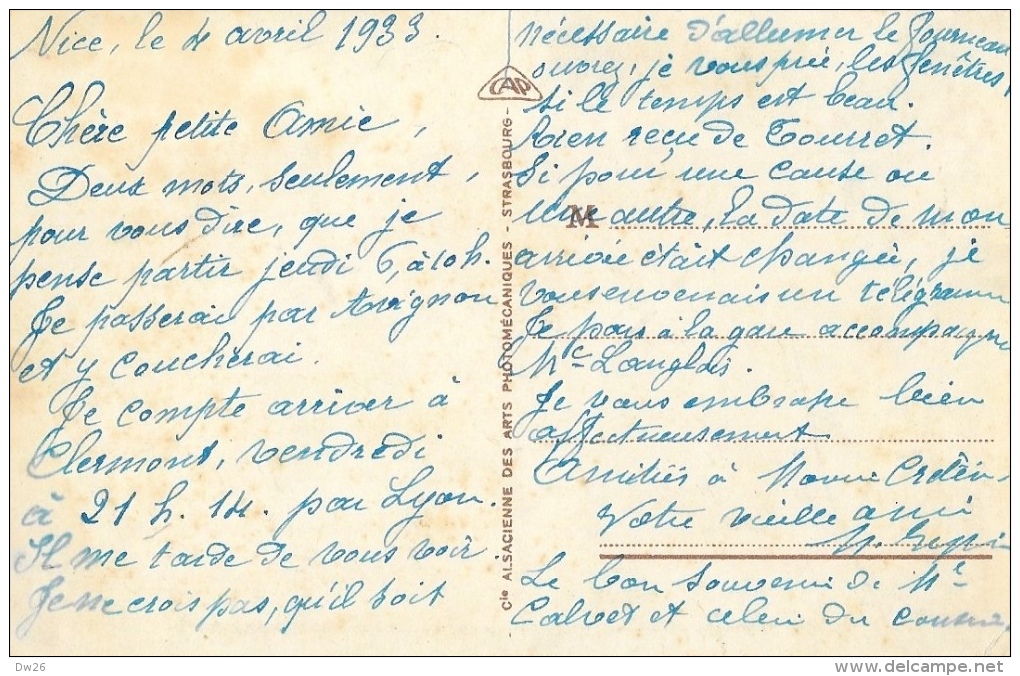 Nice, le 4 avril 1933.
Chère petite Amie,
Deux mots, seulement,
pour vous dire, que je
pense partir jeudi 6, à 10h.
Je passerai par Avignon
et y coucherai.
Je compte arriver à
Clermont, vendredi
à 21 h. 14. par Lyon.
Il me tarde de vous voir
Je ne crois pas, qu'il soit
nécessaire d'allumer le fourneau
ouvrez, je vous prie, les fenêtres,
si le temps est beau.
Rien reçu de Tourret.
Si pour une cause ou
une autre, la date de mon
arrivée était changée, je
vous enverrais un télégramme
Je pars à la gare accompagner
Mc Langlois.
Je vous embrasse bien
affectueusement
Amitiés à
Votre vieille amie
Le bon souvenir de Mc
Calvet et celui du
CAP
M
Cie ALSACIENNE DES ARTS PHOTOMÉCANIQUES - STRASBOURG -
Dw26
www.delcampe.net